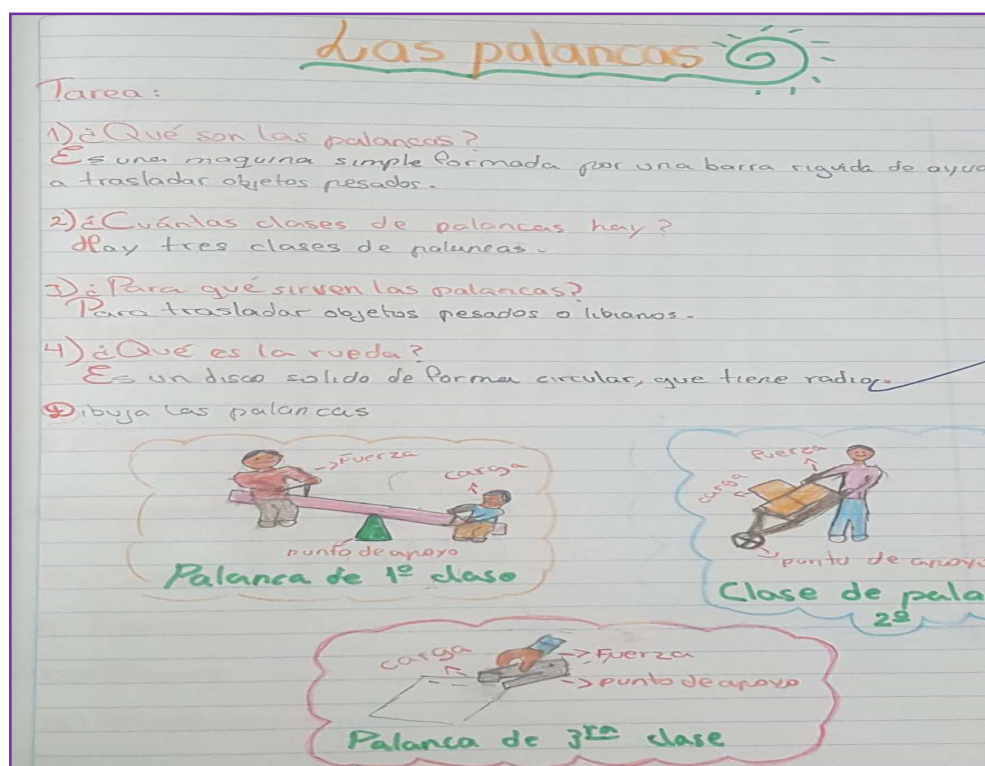 Las palancas
Tarea:
1) ¿Qué son las palancas?
Es una maquina simple formada por una barra riguida de ayud
a trasladar objetos pesados.
2) ¿Cuántas clases de palancas hay?
Hay tres clases de palancas.
3) ¿Para qué sirven las palancas?
Para trasladar objetos pesados o libianos.
4) ¿Qué es la rueda?
Es un disco solido de forma circular, que tiene radio.
Dibuja las palancas
Fuerza
carga
punto de apoyo
Palanca de 1º clase
Fuerza
carga
punto de apoyo
Clase de pala
2º
carga
Fuerza
punto de apoyo
Palanca de 3ra clase